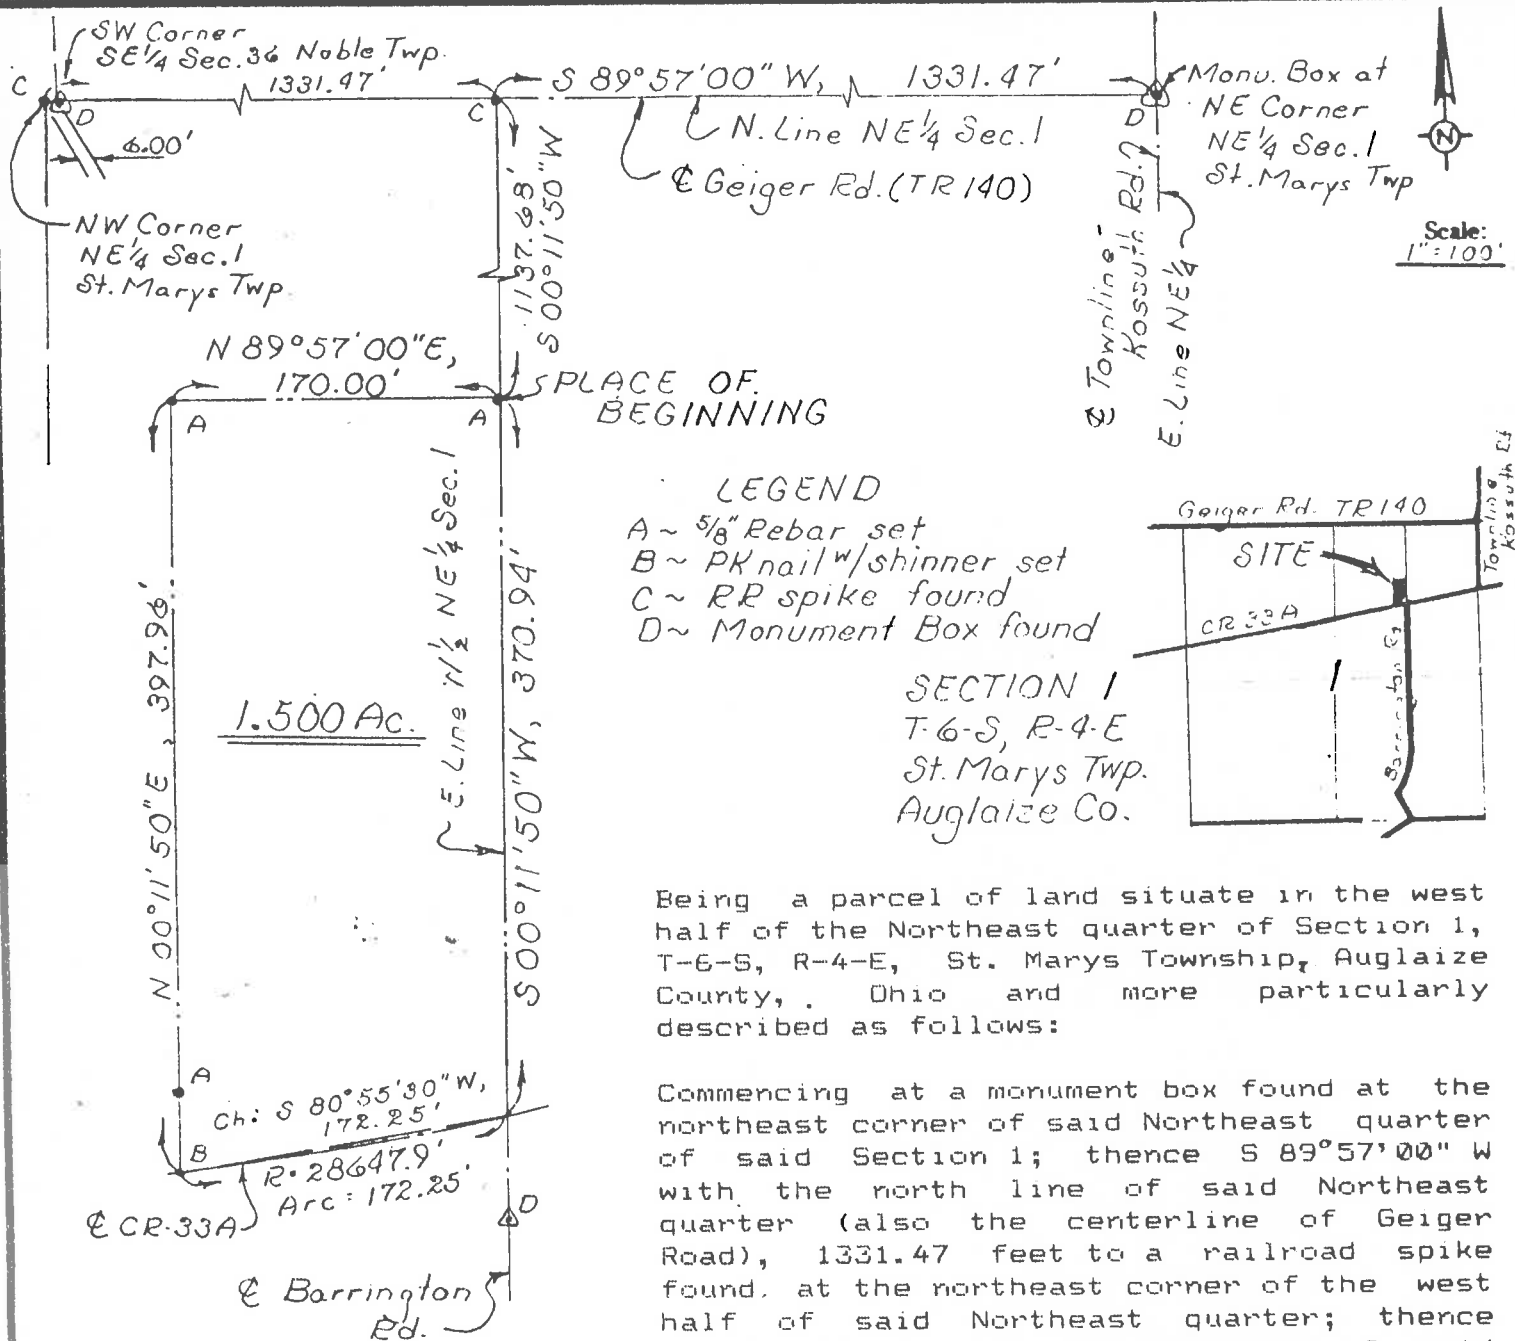 SW Corner
SE 1/4 Sec. 36 Noble Twp.
1331.47'
S 89°57'00" W, 1331.47'
C
D
C
D
6.00'
Monu. Box at
NE Corner
NE 1/4 Sec. 1
St. Marys Twp
N
N. Line NE 1/4 Sec. 1
℄ Geiger Rd. (TR 140)
NW Corner
NE 1/4 Sec. 1
St. Marys Twp.
1137.68'
S 00°11'50" W
℄ Townline-
Kossuth Rd.
E. Line NE 1/4
Scale:
1"=100'
N 89°57'00"E,
170.00'
PLACE OF
BEGINNING
A
A
LEGEND
A ~ 5/8" Rebar set
B ~ PK nail w/shinner set
C ~ RR spike found
D ~ Monument Box found
Geiger Rd. TR 140
Townline
Kossuth Rd
SITE
CR 33A
Barrington Rd
1
SECTION 1
T-6-S, R-4-E
St. Marys Twp.
Auglaize Co.
N 00°11'50"E, 397.96'
1.500 Ac.
E. Line W 1/2 NE 1/4 Sec. 1
S 00°11'50"W, 370.94'
A
Ch: S 80°55'30"W,
172.25'
B
R= 28647.9'
Arc = 172.25'
D
℄ CR-33A
℄ Barrington
Rd.
Being a parcel of land situate in the west
half of the Northeast quarter of Section 1,
T-6-S, R-4-E, St. Marys Township, Auglaize
County, . Ohio and more particularly
described as follows:
Commencing at a monument box found at the
northeast corner of said Northeast quarter
of said Section 1; thence S 89°57'00" W
with the north line of said Northeast
quarter (also the centerline of Geiger
Road), 1331.47 feet to a railroad spike
found. at the northeast corner of the west
half of said Northeast quarter; thence